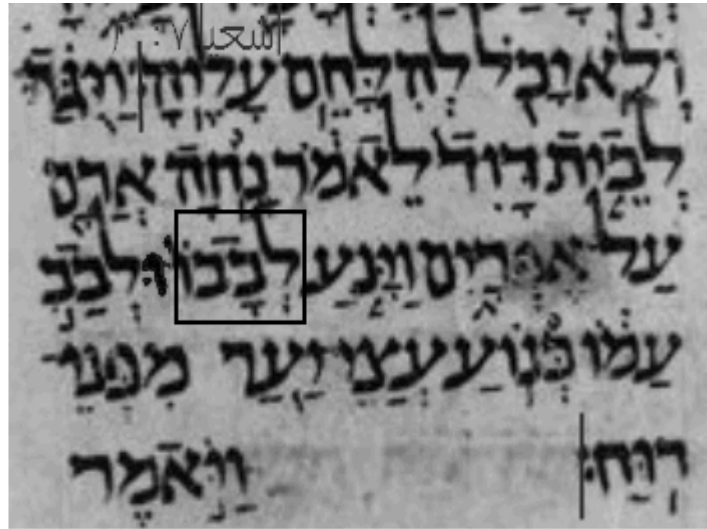 اشعيا ٧ : ٢
וְלֹא יָכֹל לְהִלָּחֵם עָלֶיהָ׃ וַיֻּגַּד
לְבֵית דָּוִד לֵאמֹר נָחָה אֲרָם
עַל אֶפְרָיִם וַיָּנַע לְבָבוֹ וּלְבַב
עַמּוֹ כְּנוֹעַ עֲצֵי יַעַר מִפְּנֵי
רוּחַ׃ וַיֹּאמֶר